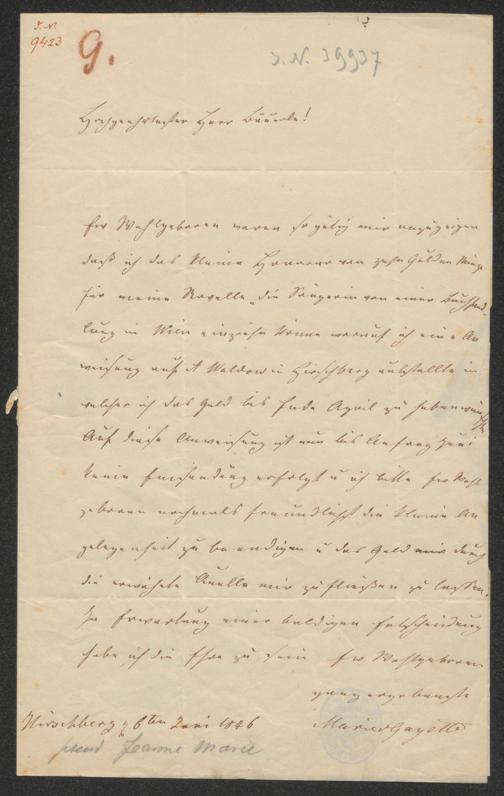 I. N.
9423
G.
I. N. 39937
Hochgeehrtester Herr Bäuerle!
Ew Wohlgeboren waren so gütig mir anzuzeigen
daß ich das kleine Honorar von zehn Gulden Münze
für meine Novelle „die Sängerin von einer Buchhand
lung in Wien einziehn könne worauf ich eine An
weisung auf A Waldow in Hirschberg ausstellte in
welcher ich das Geld bis Ende April zu haben wünschte
Auf diese Anweisung ist nun bis Anfang Juni
keine Einsendung erfolgt u ich bitte Ew Wohl
geboren nochmals freundlichst die kleine An
gelegenheit zu beendigen u das Geld mir durch
die erwähnte Quelle mir zufließen zu lassen.
In Erwartung einer baldigen Entscheidung
habe ich die Ehre zu sein Ew Wohlgeboren
ganz ergebenste
Hirschberg 6ten Juni 1846
Marie Gayette
pseud Jeanne Marie